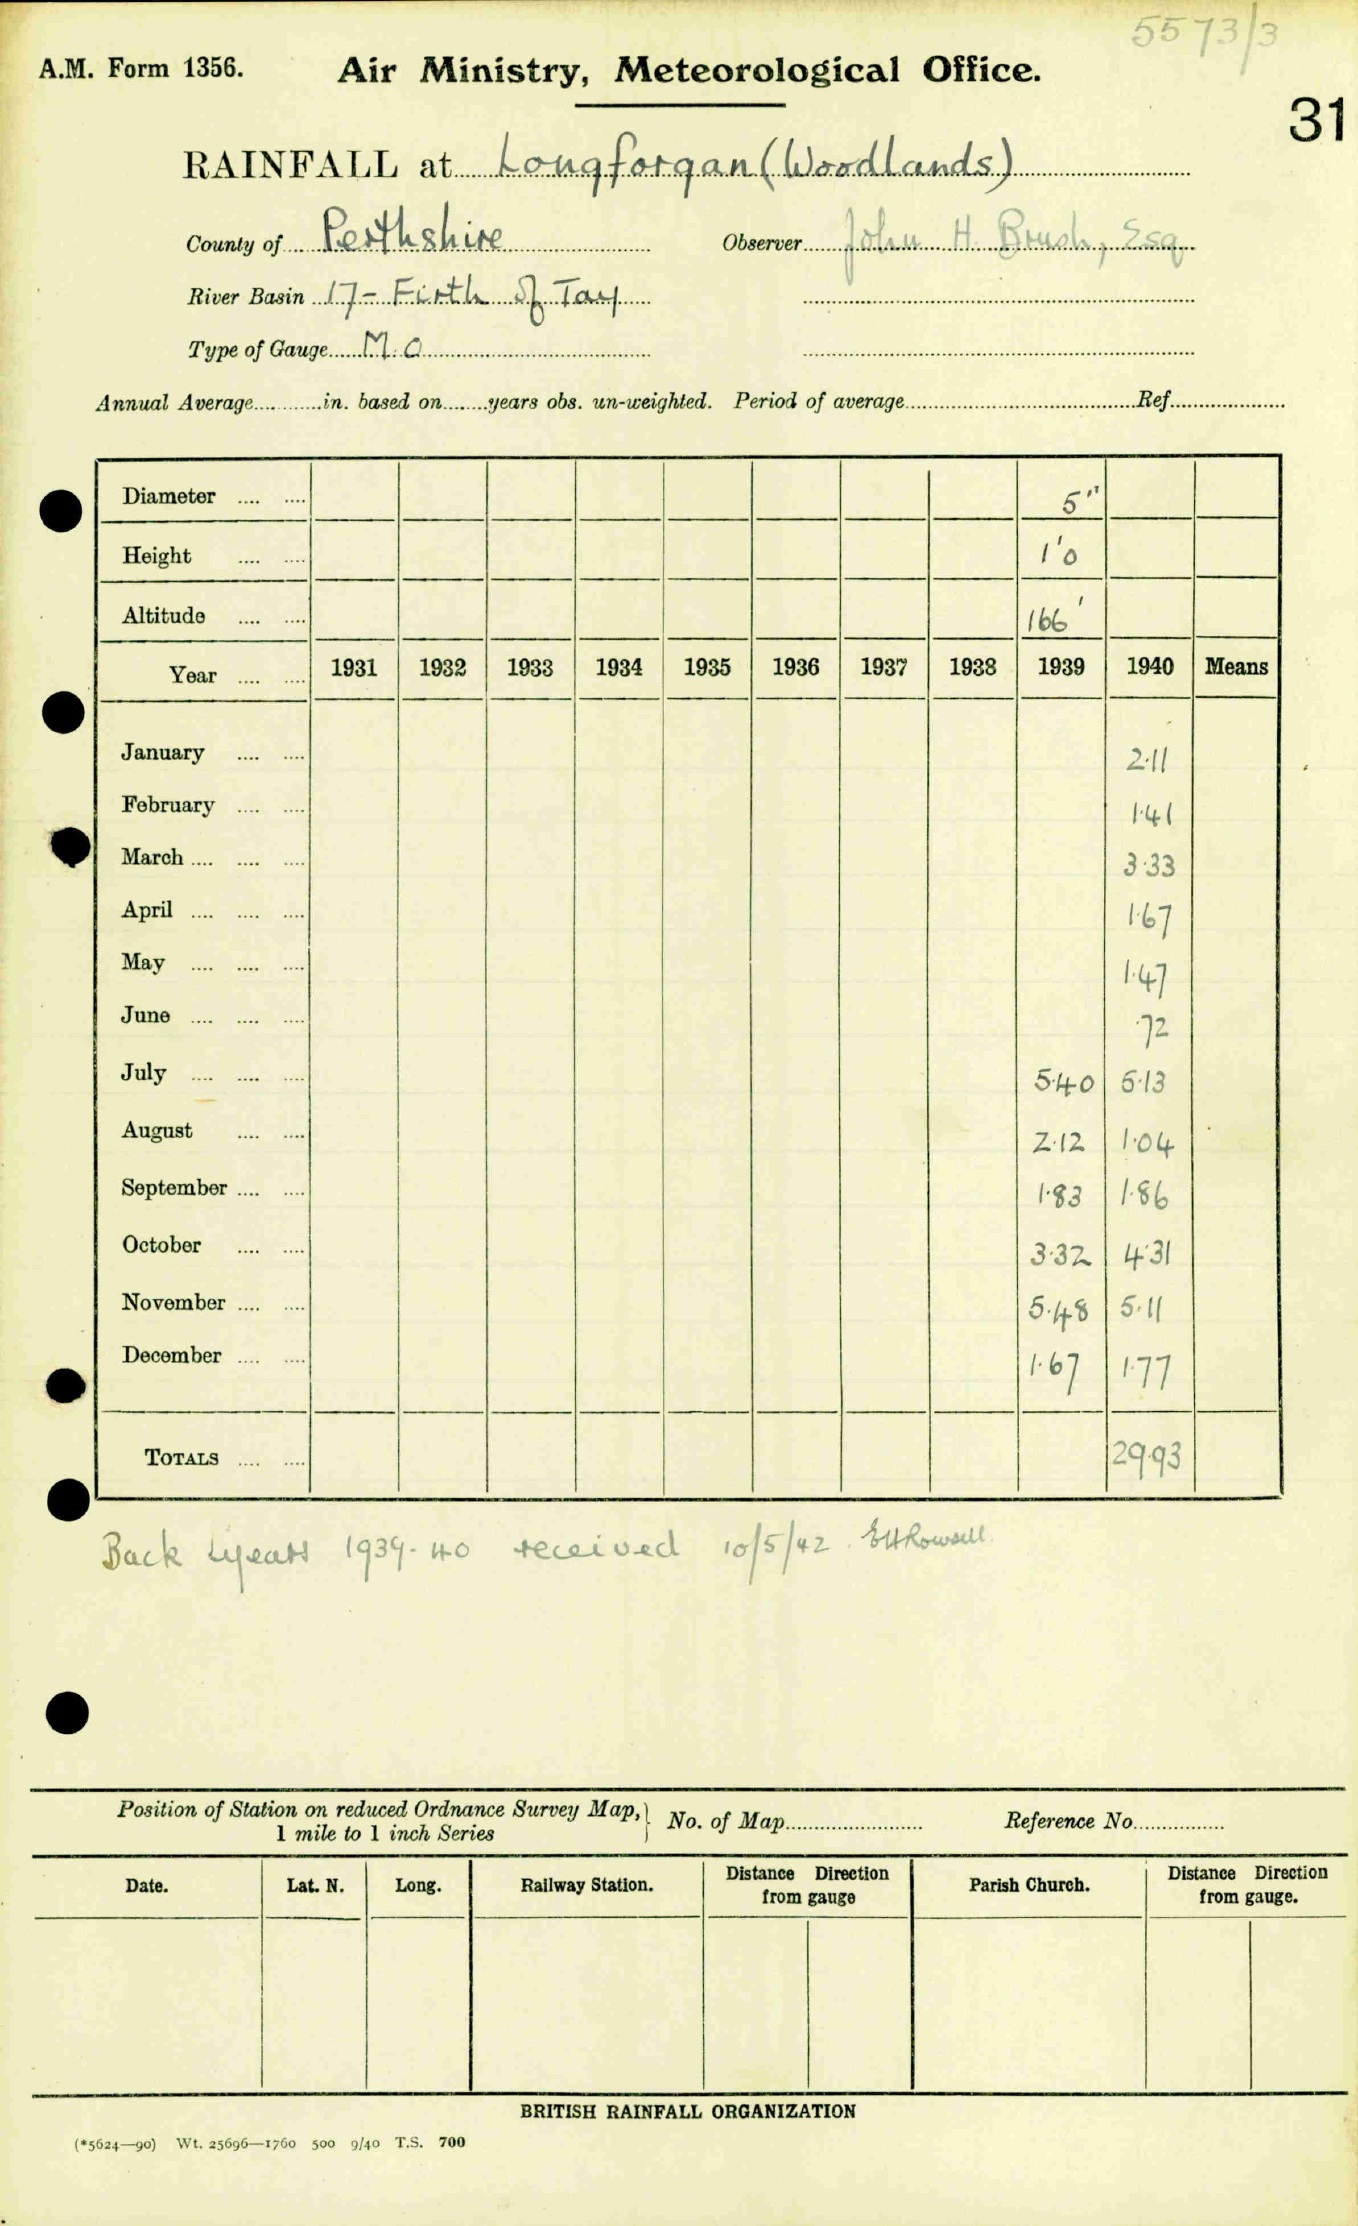 5573/3
A.M. Form 1356.
Air Ministry, Meteorological Office.
31
RAINFALL at Longforgan (Woodlands)
County of Perthshire Observer John H. Brush, Esq
River Basin 17 - Firth of Tay
Type of Gauge M.O
Annual Average in. based on years obs. un-weighted. Period of average Ref.
Diameter 5"
Height 1'0
Altitude 166'
Year 1931 1932 1933 1934 1935 1936 1937 1938 1939 1940 Means
January 2·11
February 1·41
March 3·33
April 1·67
May 1·47
June ·72
July 5·40 5·13
August 2·12 1·04
September 1·83 1·86
October 3·32 4·31
November 5·48 5·11
December 1·67 1·77
TOTALS 29·93
Back years 1939-40 received 10/5/42. EHRowsell.
Position of Station on reduced Ordnance Survey Map, 1 mile to 1 inch Series
No. of Map Reference No.
Date. Lat. N. Long. Railway Station. Distance Direction from gauge Parish Church. Distance Direction from gauge.
BRITISH RAINFALL ORGANIZATION
(*5624—90) Wt. 25696—1760 500 9/40 T.S. 700